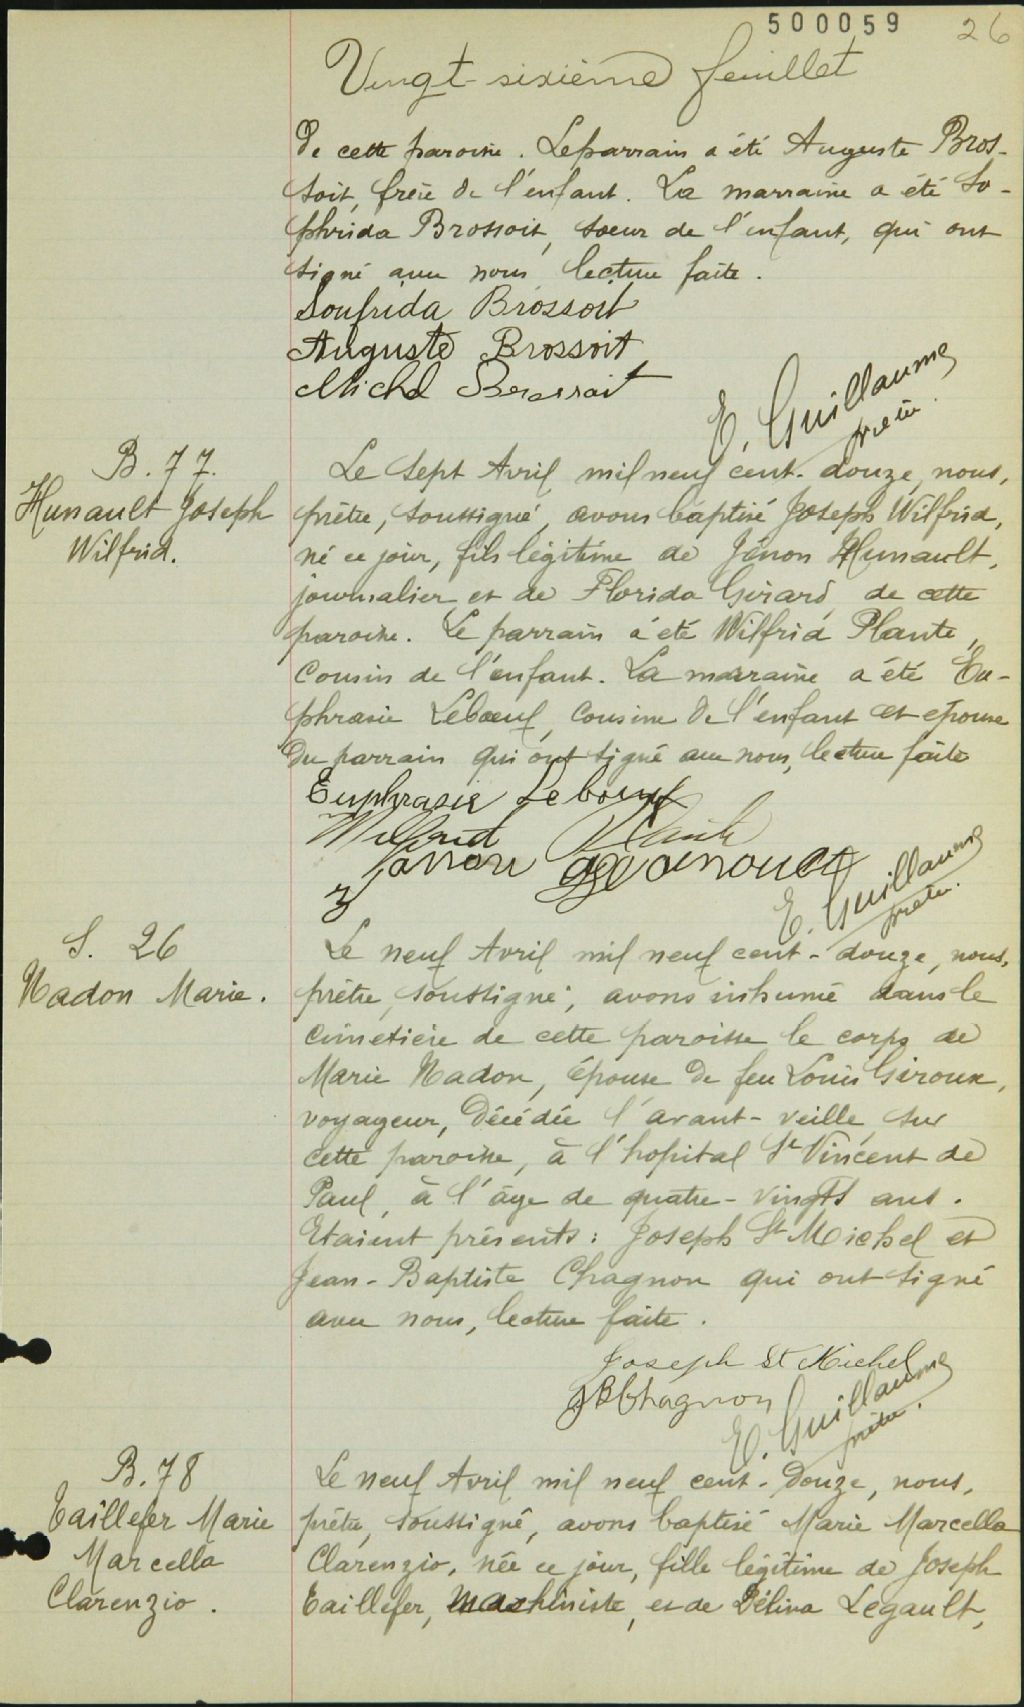 500059 26
Vingt-sixième feuillet
De cette paroisse. Le parrain a été Auguste Bros-
soit, frère de l'enfant. La marraine a été So-
phrida Brossoit, soeur de l'enfant, qui ont
signé avec nous, lecture faite.
Soufrida Brossoit
Auguste Brossoit
Michel Brossoit
E. Guillaume
prêtre.
B. 77.
Hunault Joseph
Wilfrid.
Le sept Avril mil neuf cent-douze, nous,
prêtre, soussigné, avons baptisé Joseph Wilfrid,
né ce jour, fils légitime de Jénon Hunault,
journalier, et de Florida Girard, de cette
paroisse. Le parrain a été Wilfrid Plante,
cousin de l'enfant. La marraine a été Eu-
phrasie Leboeuf, cousine de l'enfant et épouse
du parrain qui ont signé avec nous, lecture faite
Euphrasie Leboeuf
Wilfrid Plante
E. Guillaume
prêtre.
S. 26
Nadon Marie.
Le neuf Avril mil neuf cent-douze, nous,
prêtre, soussigné, avons inhumé dans le
cimetière de cette paroisse le corps de
Marie Nadon, épouse de feu Louis Giroux,
voyageur, décédée l'avant-veille, sur
cette paroisse, à l'hopital St Vincent de
Paul, à l'âge de quatre-vingts ans.
Etaient présents: Joseph St Michel et
Jean-Baptiste Chagnon qui ont signé
avec nous, lecture faite.
Joseph St Michel
JB Chagnon
E. Guillaume
prêtre.
B. 78
Taillefer Marie
Marcella
Clarenzio.
Le neuf Avril mil neuf cent-douze, nous,
prêtre, soussigné, avons baptisé Marie Marcella
Clarenzio, née ce jour, fille légitime de Joseph
Taillefer, machiniste, et de Délina Legault,